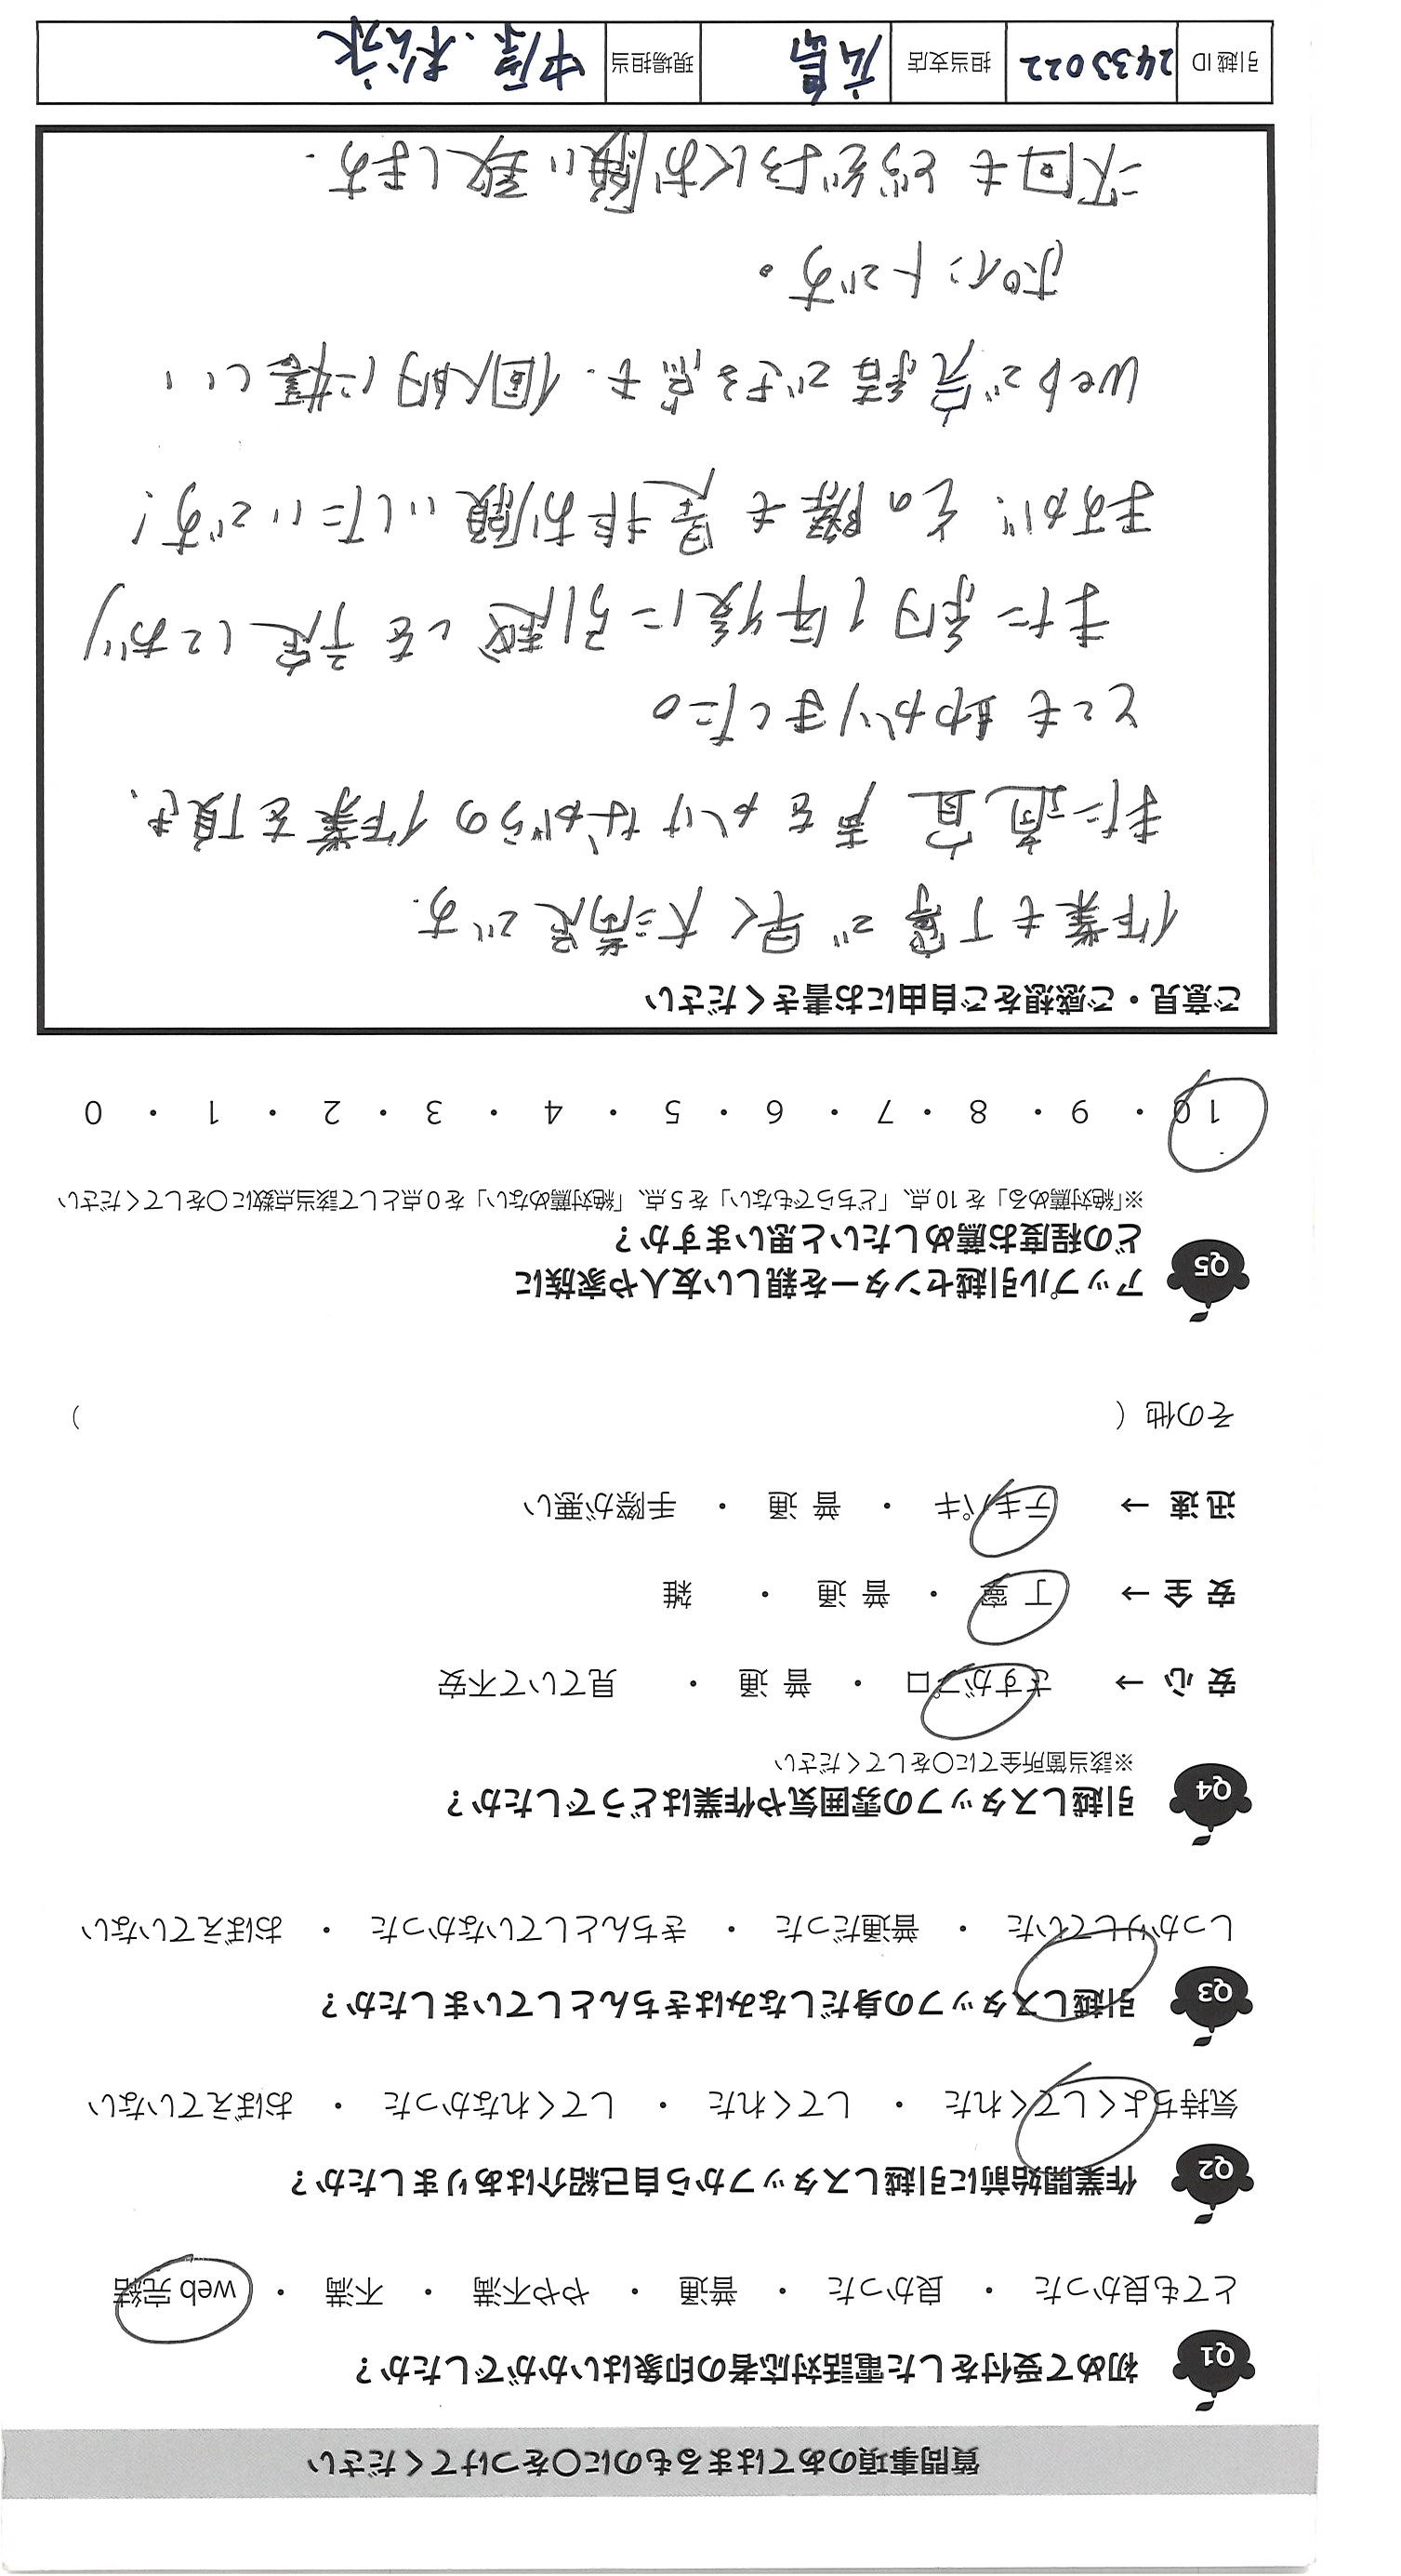 質問事項のあてはまるものに〇をつけてください
Q1 初めて受付をした電話対応者の印象はいかがでしたか？
とても良かった ・ 良かった ・ 普通 ・ やや不満 ・ 不満 ・ web 完結
Q2 作業開始前に引越しスタッフから自己紹介はありましたか？
気持ちよくしてくれた ・ してくれた ・ してくれなかった ・ おぼえていない
Q3 引越しスタッフの身だしなみはきちんとしていましたか？
しっかりしていた ・ 普通だった ・ きちんとしていなかった ・ おぼえていない
Q4 引越しスタッフの雰囲気や作業はどうでしたか？
※該当箇所全てに〇をしてください
安 心 → さすがプロ ・ 普 通 ・ 見ていて不安
安 全 → 丁 寧 ・ 普 通 ・ 雑
迅 速 → テキパキ ・ 普 通 ・ 手際が悪い
その他（ ）
Q5 アップル引越センターを親しい友人や家族に
どの程度お薦めしたいと思いますか？
※「絶対薦める」を 10 点、「どちらでもない」を 5 点、「絶対薦めない」を 0 点として該当点数に〇をしてください
10 ・ 9 ・ 8 ・ 7 ・ 6 ・ 5 ・ 4 ・ 3 ・ 2 ・ 1 ・ 0
ご意見・ご感想をご自由にお書きください
作業も丁寧で早く大満足です.
また適宜声をかけながらの作業を頂き、
とても助かりました。
また約1年後に引越しを予定しており
ますが、その際も是非お願いしたいです!
Webで完結できる点も、個人的に嬉しい
ポイントです。
次回もどうぞよろしくお願い致します.
引越 ID 2433022 担当支店 広島 現場担当 中原、松永